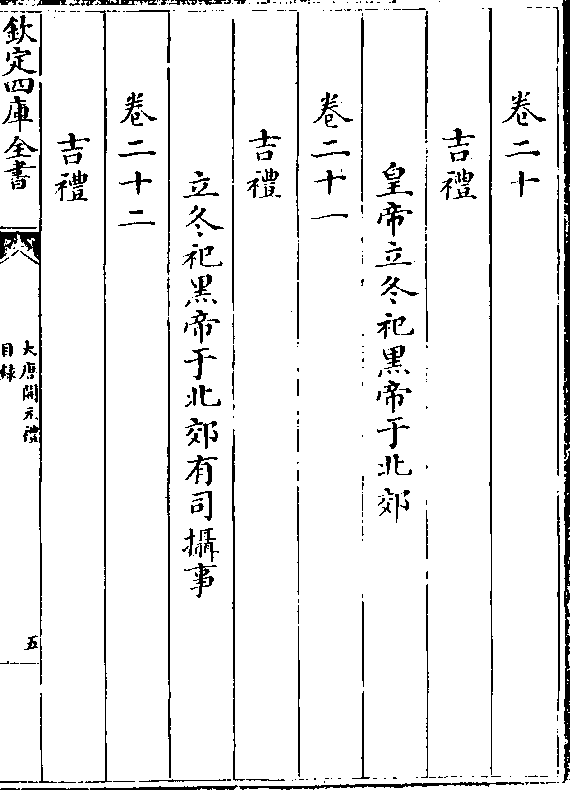 卷二十
吉禮
皇帝立冬祀黑帝于北郊
卷二十一
吉禮
立冬祀黑帝于北郊有司攝事
卷二十二
吉禮
欽定四庫全書
大唐開元禮
目錄
五